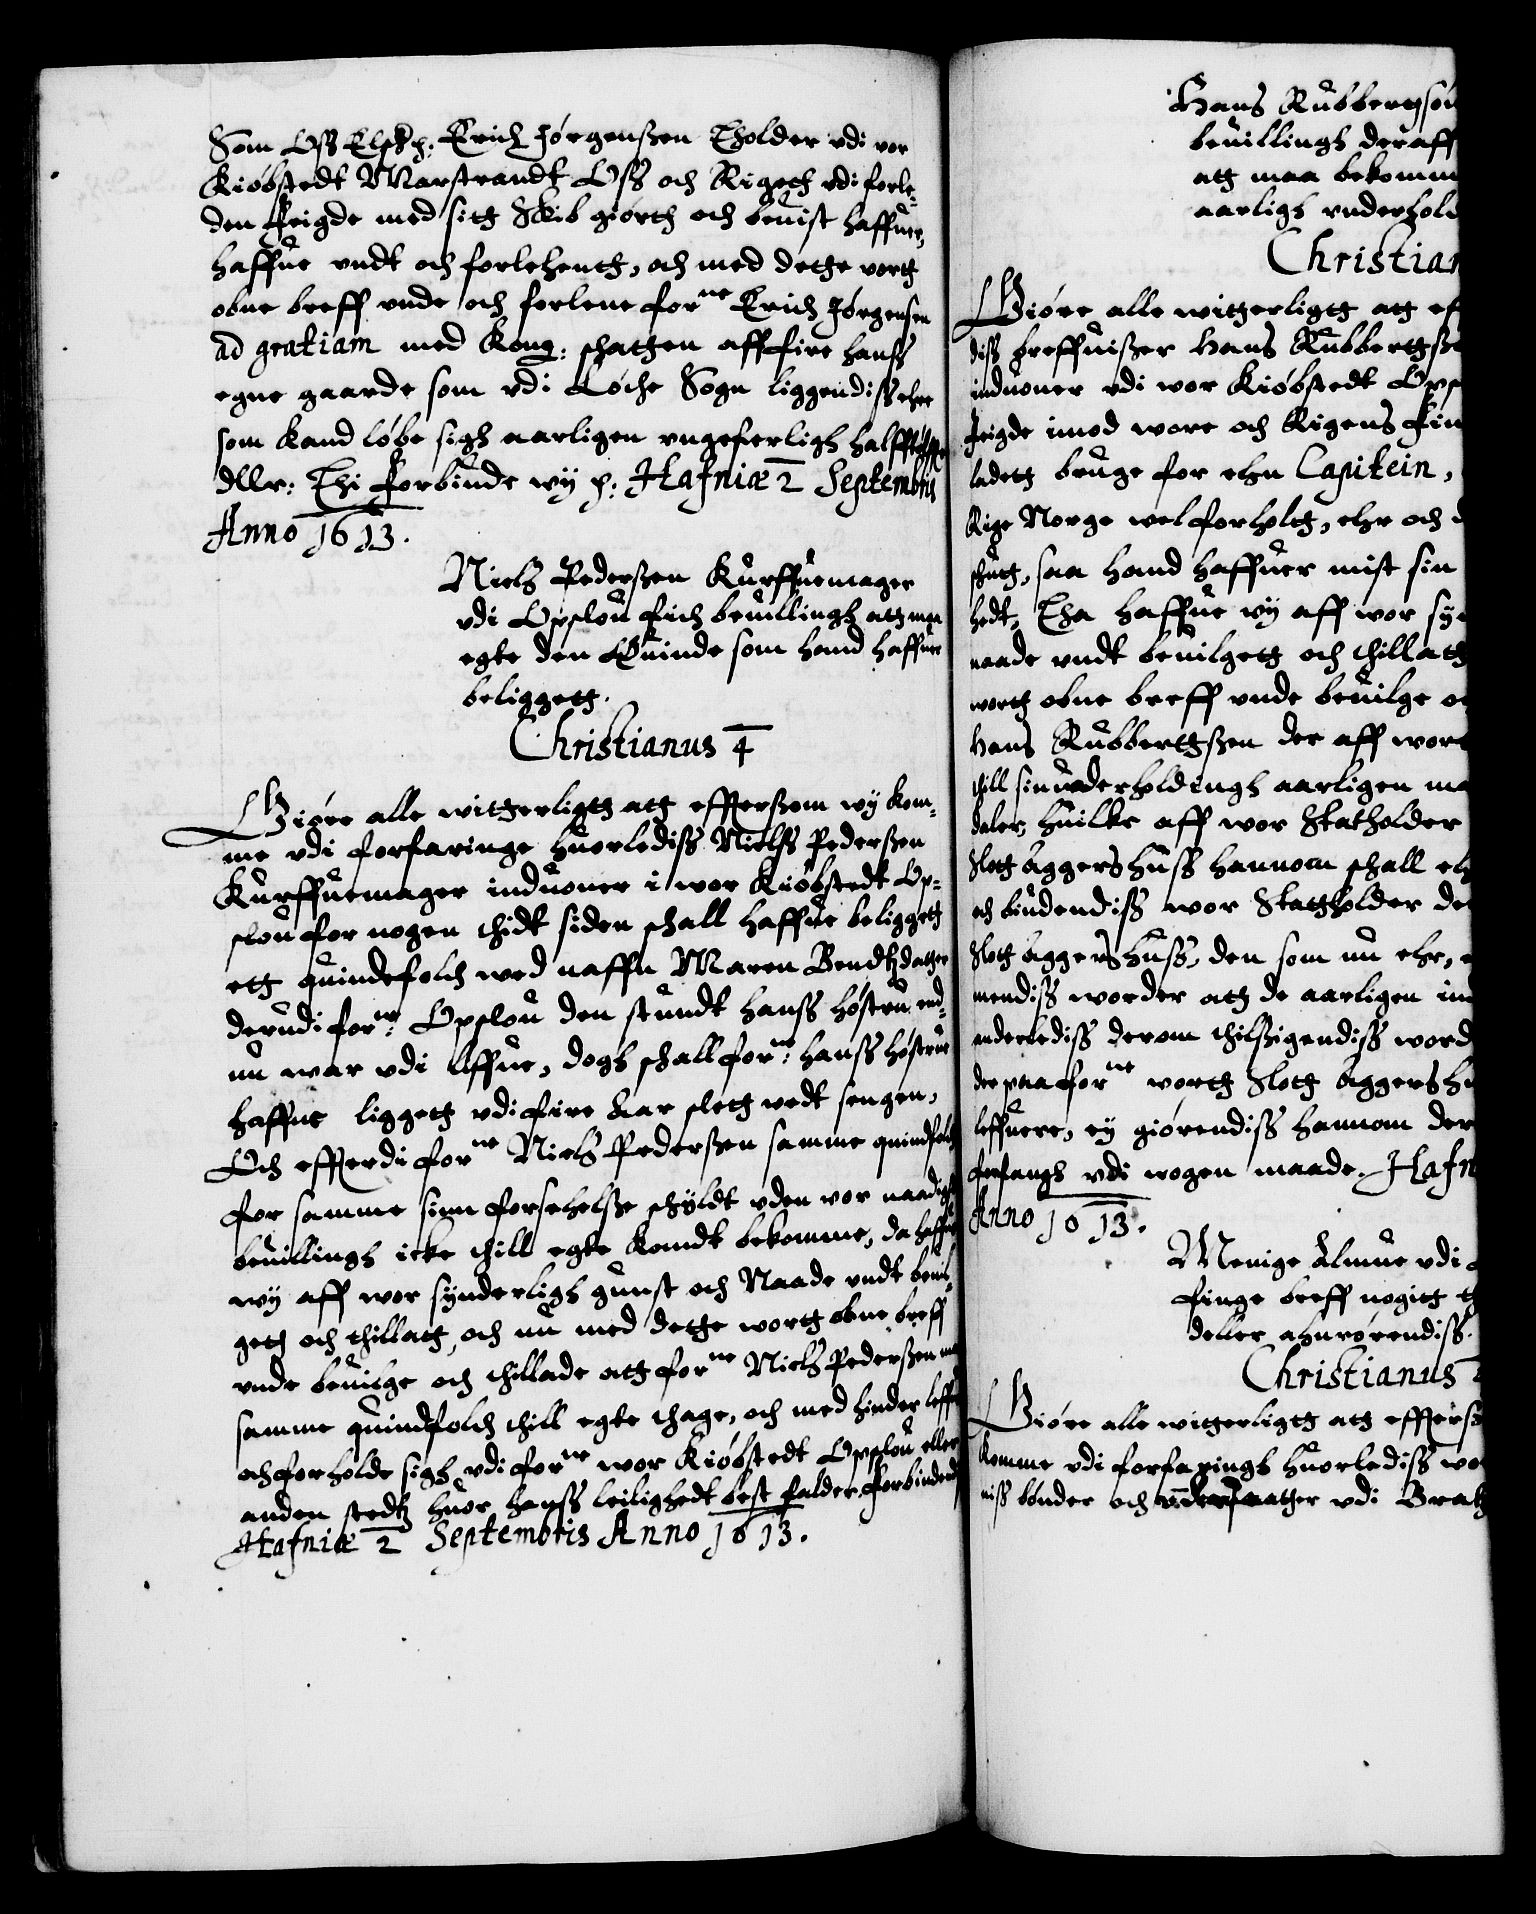 Som Oss Elsk: p: Erich Jørgenssen Tholder vdi vor
Kiøbstedt Marstrandt Oss och Rigeth vdi forle-
den Feigde med sitg Skib giørth och beuist haffuer,
haffue vndt och forlehentg, och med dethe wortg
obne breff vnde och forlene forne Erich Jørgensen
ad gratiam med Kong: schatthen aff fire hanss
egne gaarde som vdi Løche Sogn liggendiss ehre
som Kand løbe sigh aarligen vngeferligh halfftolfte
dllr: Thi forbiude wy p: Hafniæ 2 Septembris
Anno 1613.
Niels Pederssen Kurffuemager
vdi Opslou fich beuillingh atg maa
egte den Quinde som hand haffuer
beliggetg.
Christianus 4
Giøre alle witterligtg atg effterssom wy kom-
me vdi forfaringe huorlediss Nielss Pederssen
Kurffuemager induoner i wor Kiøbstedt Op-
slou for nogen thidt siden schall haffue beliggetg
etg quindefolch wed naffn Maren Bendtzdatter
derudi forne: Opslou den stundt hanss høstru end-
nu war vdi liffue, dogh schall forne: hanss høstrue
haffue liggetg vdi fire Aar sletg wedt sengen,
Och effterdi forne Niels Pederssen samme quindfolch
for samme sinn forsehelsse schyldt vden vor naadigste
beuillingh icke thill egte Komdt bekomme, da haffue
wy aff wor synderligh gunst och Naade vndt beuil-
getg och thillatg, och nu med dethe wortg obne breff
vnde beuilge och thillade atg forne Niels Pederssen maa
samme quindfolch thill egte thage, och med hinder leffue
och forholde sigh vdi forne wor Kiøbstedt Opslou eller
anden stedtz huor hanss leilighedt best falder. Forbiudendis
Hafniæ 2 Septembris Anno 1613.
Hans Rubbertsøn
beuillingh deraff
atg maa bekomm
aarligh vnderhold
Christian
Giøre alle witterligtg atg eff
diss breffuisser Hans Rubbertgsse
induoner vdi wor Kiøbstedt Ops
feigde imod wore och Rigens Fin
ladetg bruge for ehn Capitein,
Rige Norge welforholtg, ehr och
schutg, saa hand haffuer mist sin
hedt, Tha haffue wy aff wor syn
naade vndt beuilgetg och thillatg
wortg obne breff vnde beuilge oc
Hans Rubbertgssen der aff wort
thill sin vnderholdingh aarligen ma
daler, huilke aff wor Statholder
Slotg Aggershuss hannom schall eh
och biudendiss wor Statgholder de
Slotg Aggershuss, den som nu ehr,
mendiss worder atg de aarligen in
anderlediss derom thilssigendiss word
der paa forne wortg Slotg Aggershu
leffuere, ey giørendiss hannom der
forfangh vdi nogen maade. Hafn
Anno 1613.
Menige Almue vdi
finge breff nogitt
deller ahnrørendiss.
Christianus
Giøre alle witterligtg atg efferss
Komme vdi forfaringh huorlediss wo
niss bønder och vndersaather vdi Brat